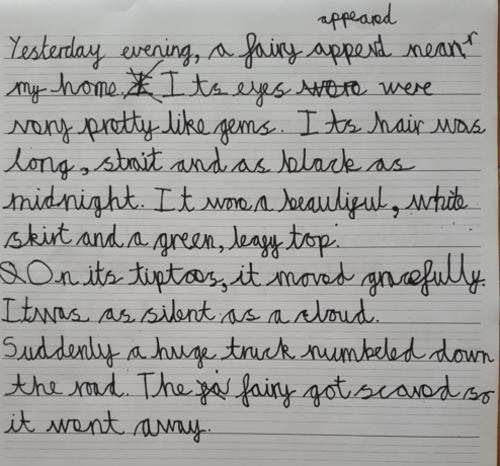 appeared
Yesterday evening, a fairy apperd near
my home. Its eyes were were
very pretty like gems. Its hair was
long, strait and as black as
midnight. It wore a beautiful, white
skirt and a green, leafy top.
On its tiptoes, it moved gracefully.
It was as silent as a cloud.
Suddenly a huge truck rumbeled down
the road. The fairy got scared so
it went away.